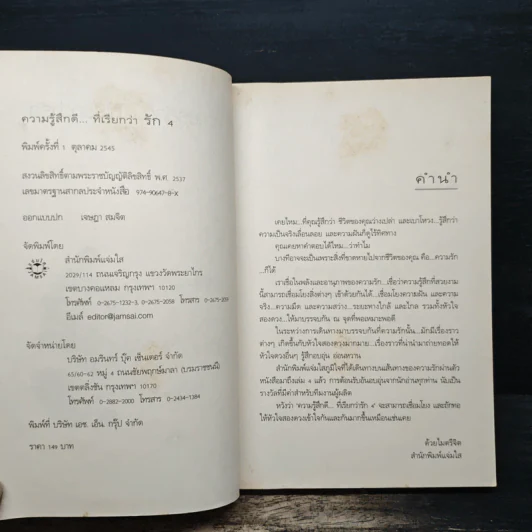 ความรู้สึกดี... ที่เรียกว่า รัก 4
พิมพ์ครั้งที่ 1 ตุลาคม 2545
สงวนลิขสิทธิ์ตามพระราชบัญญัติลิขสิทธิ์ พ.ศ. 2537
เลขมาตรฐานสากลประจำหนังสือ 974-90647-8-X
ออกแบบปก เจษฎา สมจิต
จัดพิมพ์โดย
สำนักพิมพ์แจ่มใส
2029/114 ถนนเจริญกรุง แขวงวัดพระยาไกร
เขตบางคอแหลม กรุงเทพฯ 10120
โทรศัพท์ 0-2675-1232-3, 0-2675-2058 โทรสาร 0-2675-205
อีเมล์ editor@jamsai.com
จัดจำหน่ายโดย
บริษัท อมรินทร์ บุ๊ค เซ็นเตอร์ จำกัด
65/60-62 หมู่ 4 ถนนชัยพฤกษ์มาลา (บรมราชชนนี)
เขตตลิ่งชัน กรุงเทพฯ 10170
โทรศัพท์ 0-2882-2000 โทรสาร 0-2434-1384
พิมพ์ที่ บริษัท เอช. เอ็น. กรุ๊ป จำกัด
ราคา 149 บาท
คำนำ
เคยไหม...ที่คุณรู้สึกว่า ชีวิตของคุณว่างเปล่า และเบาโหวง...รู้สึกว่า
ความเป็นจริงเลื่อนลอย และความฝันก็ดูไร้ทิศทาง
คุณเคยหาคำตอบได้ไหม...ว่าทำไม
บางทีอาจจะเป็นเพราะสิ่งที่ขาดหายไปจากชีวิตของคุณ คือ...ความรัก
...ก็ได้
เราเชื่อในพลังและอานุภาพของความรัก...เชื่อว่าความรู้สึกที่สวยงาม
นี้สามารถเชื่อมโยงสิ่งต่างๆ เข้าด้วยกันได้...เชื่อมโยงความฝัน และความ
จริง...ความมืด และความสว่าง... ระยะทางใกล้ และไกล รวมทั้งหัวใจ
สองดวง...ให้มาบรรจบกัน ณ จุดที่พอเหมาะพอดี
ในระหว่างการเดินทางมาบรรจบกันที่ความรักนั้น...มักมีเรื่องราว
ต่างๆ เกิดขึ้นกับหัวใจสองดวงมากมาย... เรื่องราวที่นำมาถ่ายทอดให้
หัวใจดวงอื่นๆ รู้สึกอบอุ่น อ่อนหวาน
สำนักพิมพ์แจ่มใสภูมิใจที่ได้เดินทางบนเส้นทางของความรักผ่านตัว
หนังสือมาถึงเล่ม 4 แล้ว การต้อนรับอันอบอุ่นจากนักอ่านทุกท่าน นับเป็น
รางวัลที่มีค่าสำหรับทีมงานผู้ผลิต
หวังว่า 'ความรู้สึกดี... ที่เรียกว่ารัก 4' จะสามารถเชื่อมโยง และถักทอ
ให้หัวใจสองดวงเข้าใจกันและกันมากขึ้นเหมือนเช่นเคย
ด้วยไมตรีจิต
สำนักพิมพ์แจ่มใส